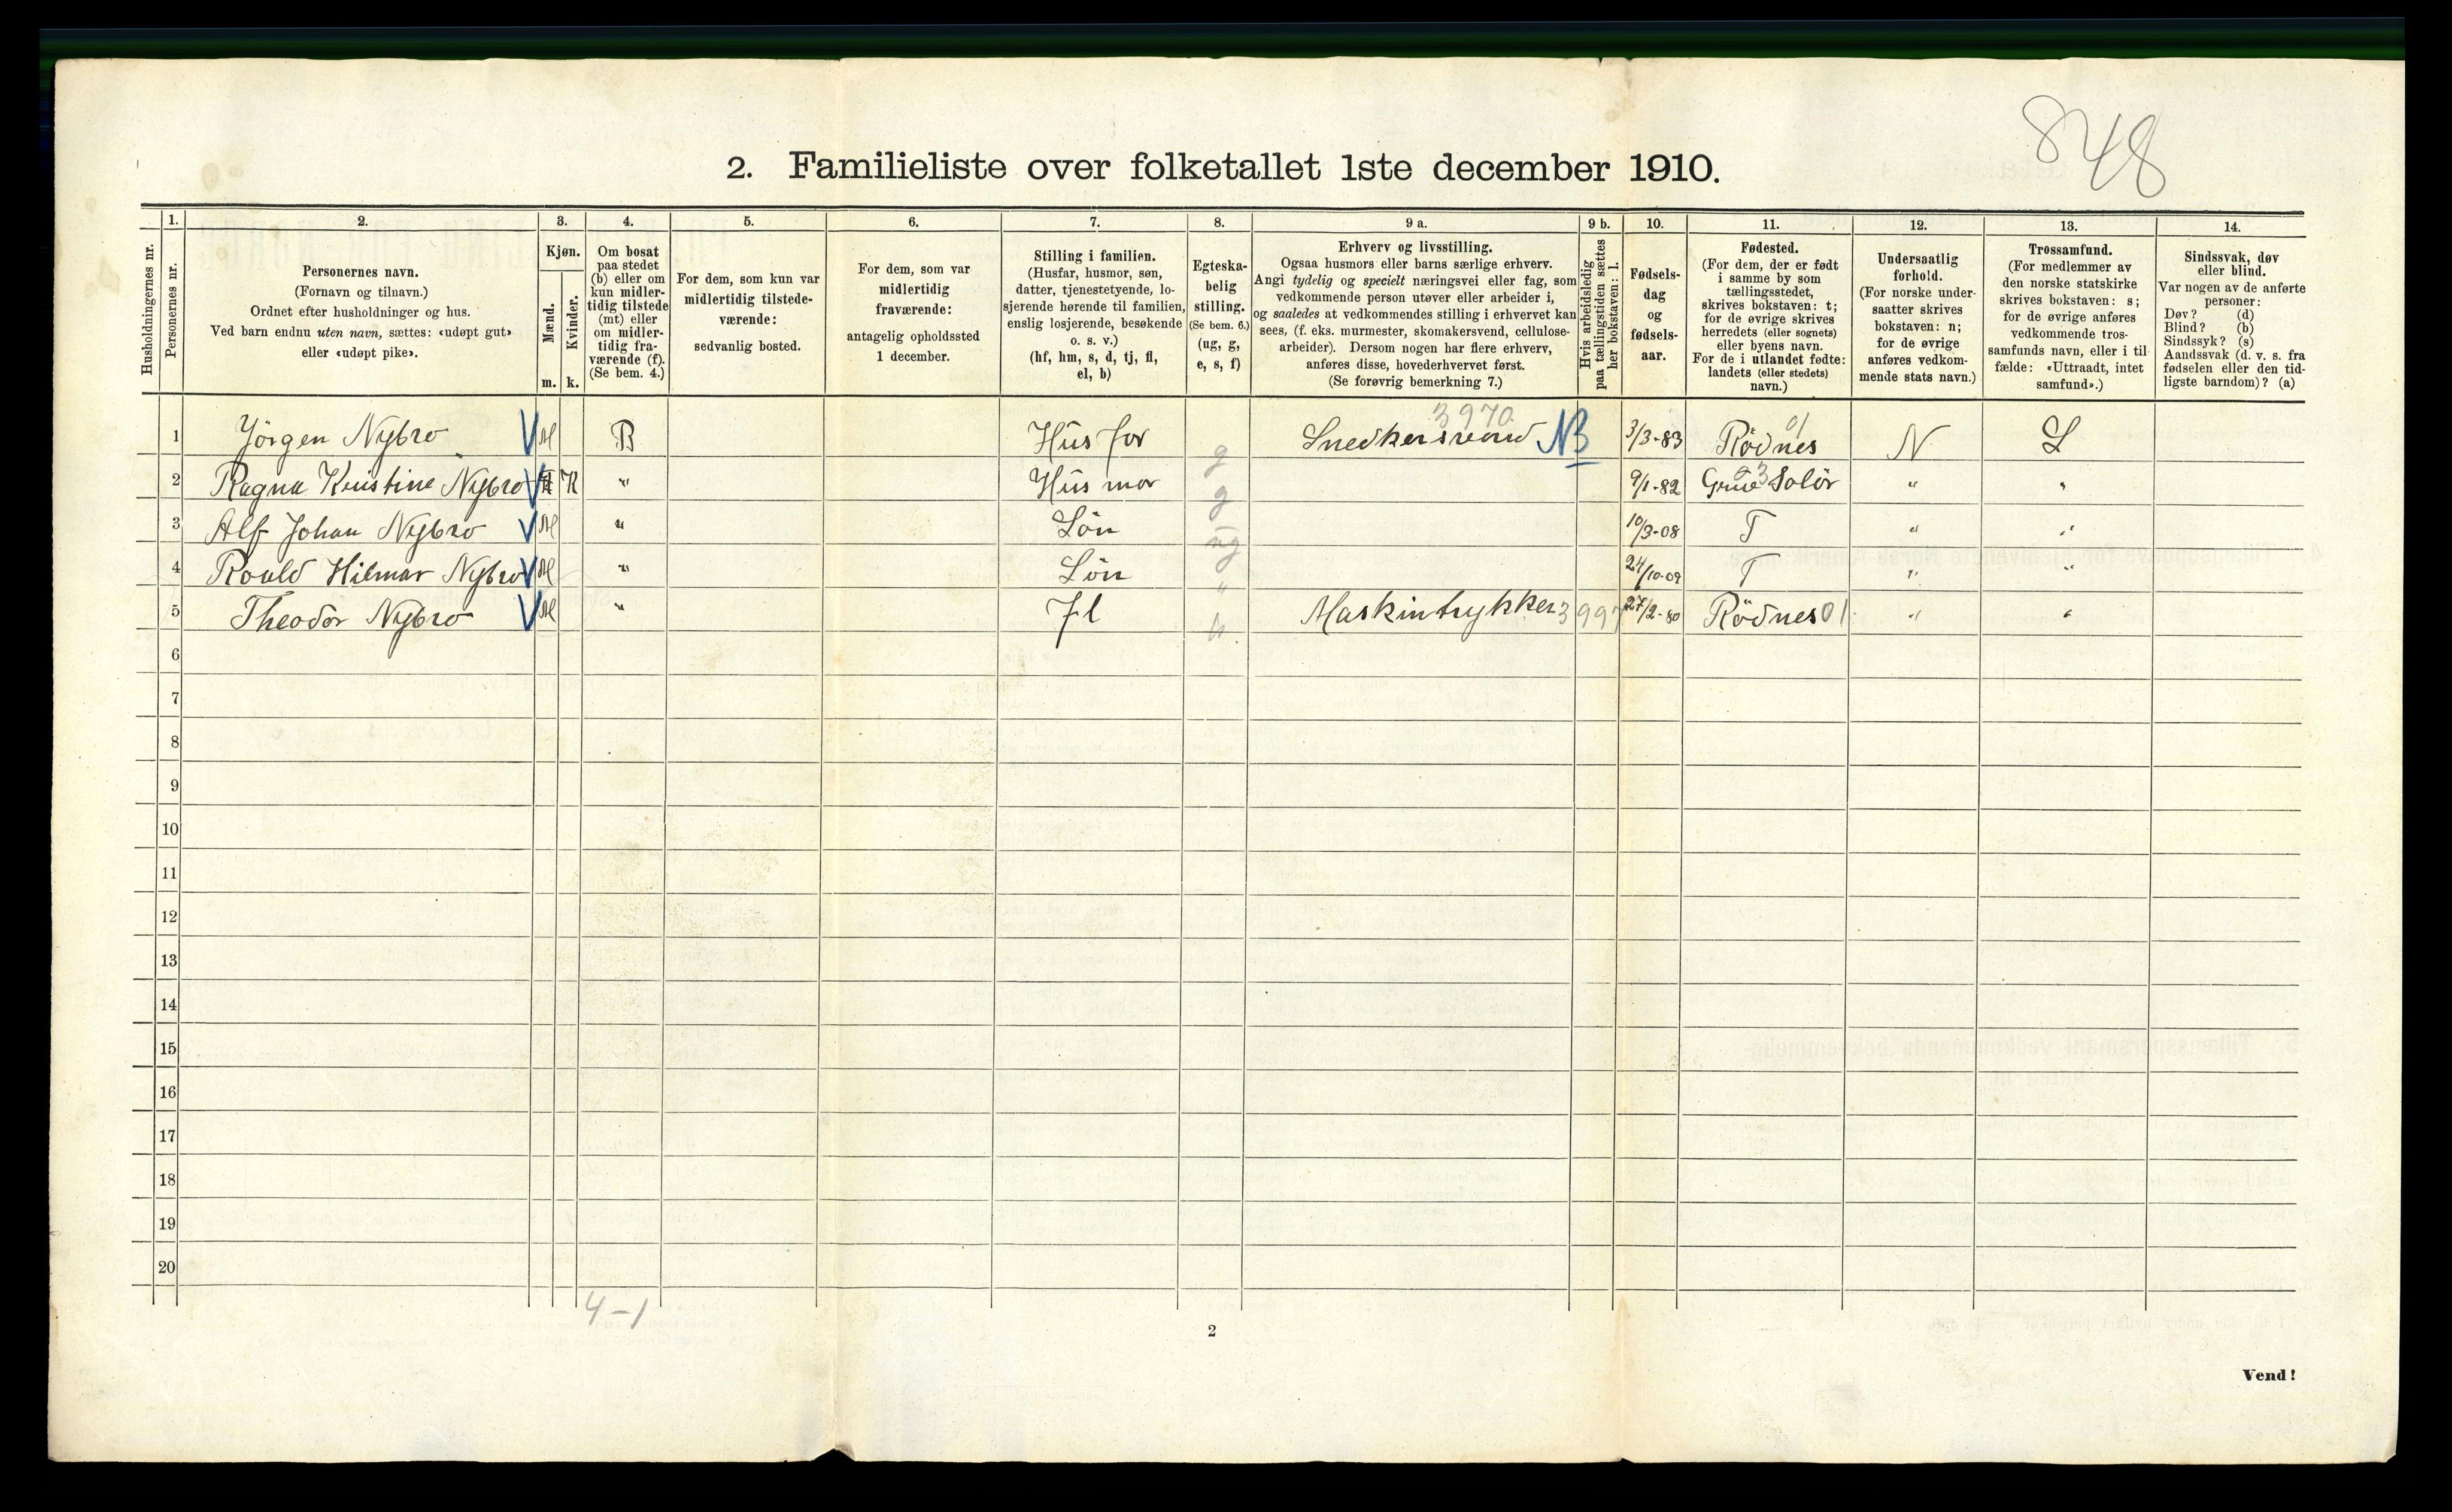 848
2. Familieliste over folketallet 1ste december 1910.
Husholdningernes nr.
1.
Personernes nr.
2.
Personernes navn.
(Fornavn og tilnavn.)
Ordnet efter husholdninger og hus.
Ved barn endnu uten navn, sættes: «udøpt gut»
eller «udøpt pike».
3.
Kjøn.
Mænd.
Kvinder.
m. k.
4.
Om bosat
paa stedet
(b) eller om
kun midler-
tidig tilstede
(mt) eller
om midler-
tidig fra-
værende (f).
(Se bem. 4.)
5.
For dem, som kun var
midlertidig tilstede-
værende:
sedvanlig bosted.
6.
For dem, som var
midlertidig
fraværende:
antagelig opholdssted
1 december.
7.
Stilling i familien.
(Husfar, husmor, søn,
datter, tjenestetyende, lo-
sjerende hørende til familien,
enslig losjerende, besøkende
o. s. v.)
(hf, hm, s, d, tj, fl,
el, b)
8.
Egteska-
belig
stilling.
(Se bem. 6.)
(ug, g,
e, s, f)
9 a.
Erhverv og livsstilling.
Ogsaa husmors eller barns særlige erhverv.
Angi tydelig og specielt næringsvei eller fag, som
vedkommende person utøver eller arbeider i,
og saaledes at vedkommendes stilling i erhvervet kan
sees, (f. eks. murmester, skomakersvend, cellulose-
arbeider). Dersom nogen har flere erhverv,
anføres disse, hovederhvervet først.
(Se forøvrig bemerkning 7.)
9 b.
Hvis arbeidsledig
paa tællingstiden sættes
her bokstaven: l.
10.
Fødsels-
dag
og
fødsels-
aar.
11.
Fødested.
(For dem, der er født
i samme by som
tællingsstedet,
skrives bokstaven: t;
for de øvrige skrives
herredets (eller sognets)
eller byens navn.
For de i utlandet fødte:
landets (eller stedets)
navn.)
12.
Undersaatlig
forhold.
(For norske under-
saatter skrives
bokstaven: n;
for de øvrige
anføres vedkom-
mende stats navn.)
13.
Trossamfund.
(For medlemmer av
den norske statskirke
skrives bokstaven: s;
for de øvrige anføres
vedkommende tros-
samfunds navn, eller i til-
fælde: «Uttraadt, intet
samfund».)
14.
Sindssvak, døv
eller blind.
Var nogen av de anførte
personer:
Døv? (d)
Blind? (b)
Sindssyk? (s)
Aandssvak (d. v. s. fra
fødselen eller den tid-
ligste barndom)? (a)
1 Jörgen Nybro V M B Hus far g 3970 Snedkersvend NB 3/3-83 Rödnes 01 N S
2 Ragna Kristine Nybro V K " Hus mor g 9/1-82 Grue Solör 03 " "
3 Alf Johan Nybro V M " Sön ug 10/3-08 T " "
4 Roald Hilmar Nybro V M " Sön " 24/10-09 T " "
5 Theodor Nybro V M " fl " Maskintrykker 3997 27/2-80 Rödnes 01 " "
6
7
8
9
10
11
12
13
14
15
16
17
18
19
20
4-1
2
Vend!